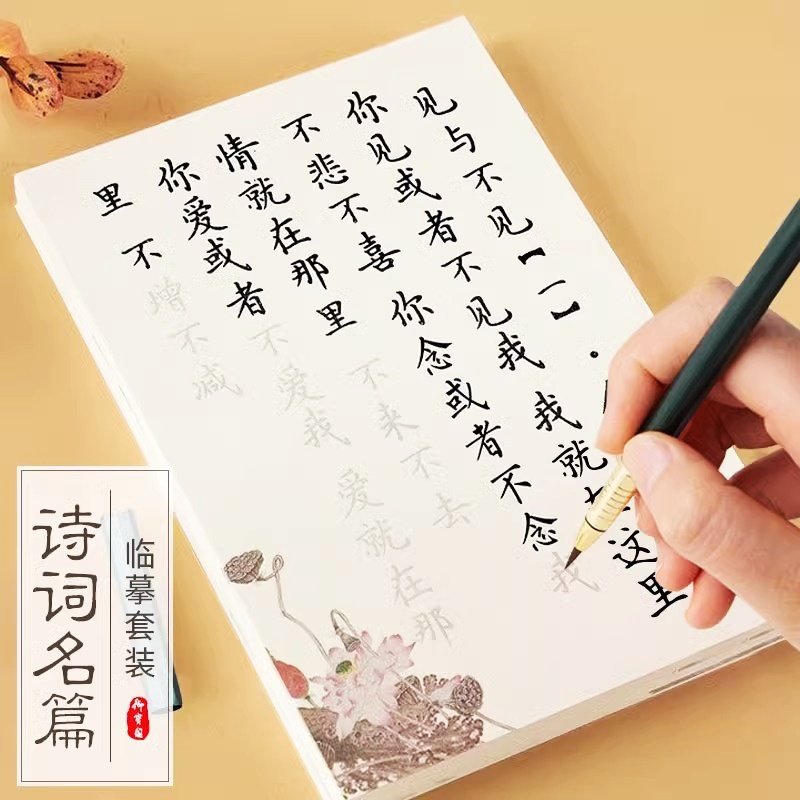 见与不见【一】·
你见或者不见我 我就在这里
不悲不喜 你念或者不念 我
情就在那里 不来不去
你爱或者不爱我 爱就在那
里 不增不减
诗词名篇
临摹套装